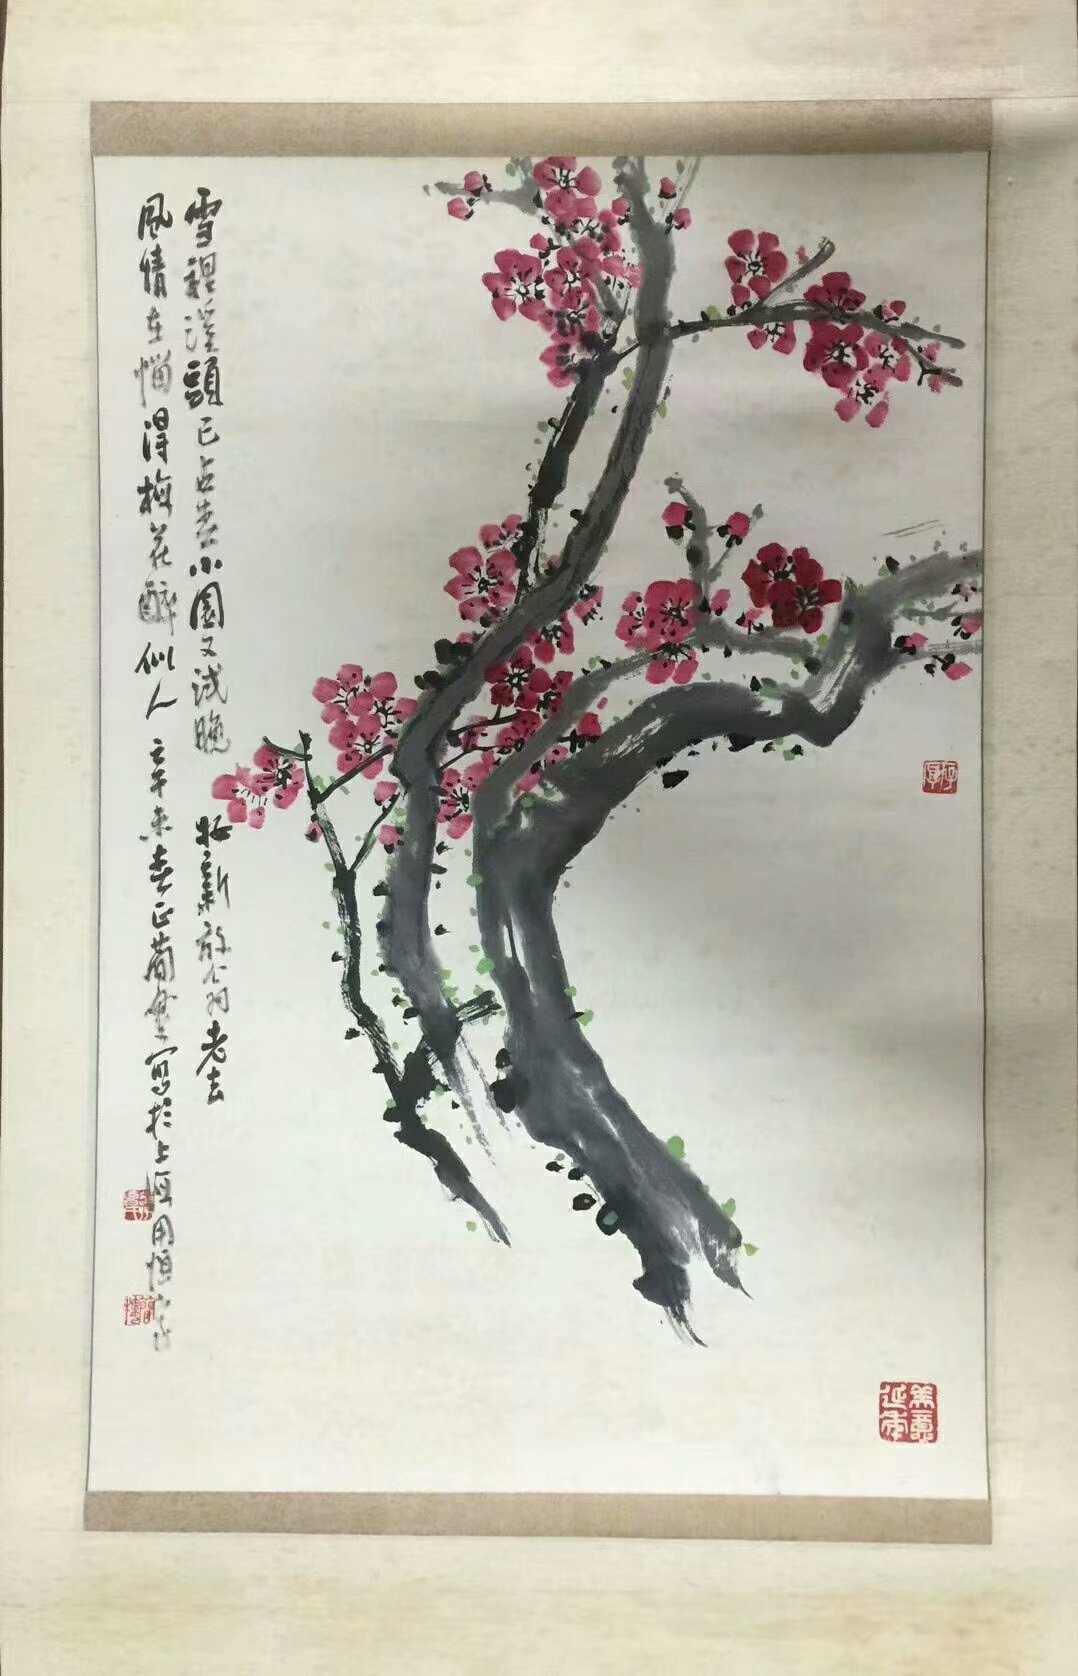 雪裡溪頭已占春小園又試晚妝新放翁老去
風情在惱得梅花醉似人 辛未春正蘭寫於上海用恒
美意延年